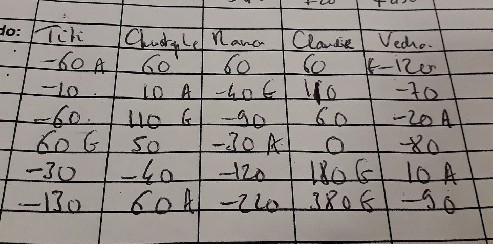 do: Titi Christophe Manon Claudie Vedran
-60 A 60 60 60 -120
-10 10 A -40 G 110 -70
-60 110 G -90 60 -20 A
60 G 50 -30 A 0 -80
-30 -40 -120 180 G 10 A
-130 60 A -220 380 G -90